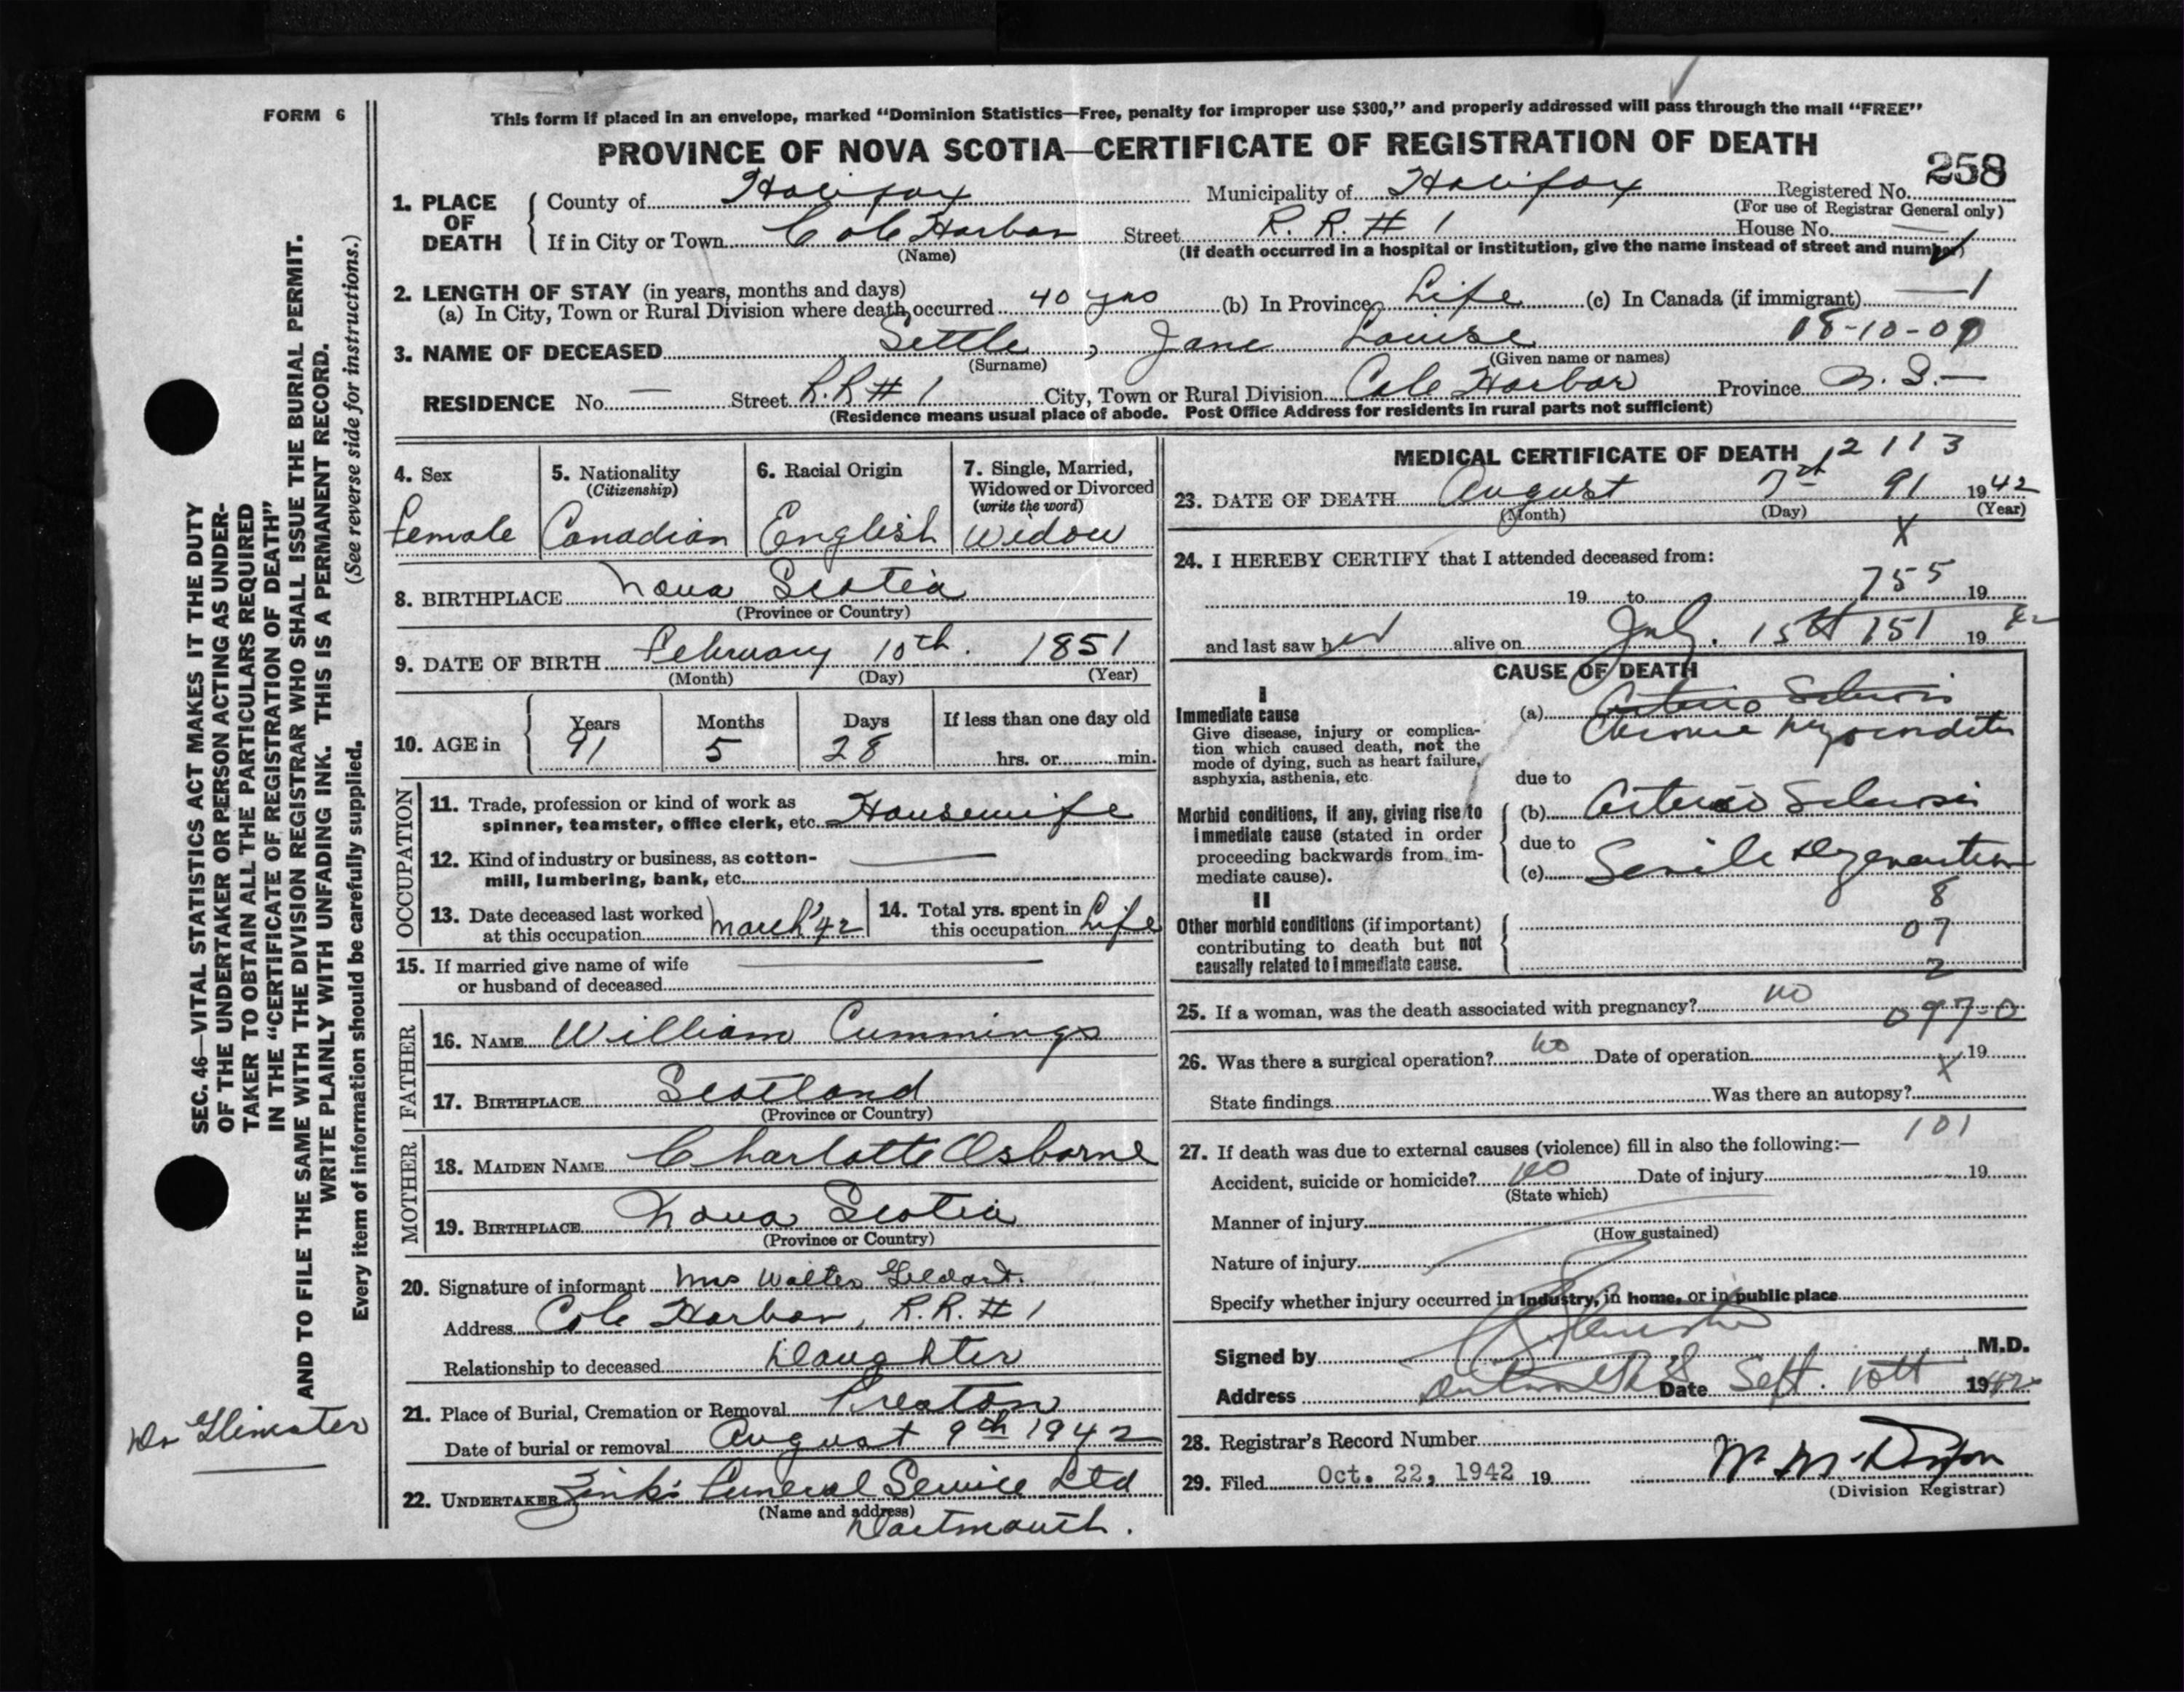 FORM 6
This form if placed in an envelope, marked “Dominion Statistics—Free, penalty for improper use $300,” and properly addressed will pass through the mail “FREE”
PROVINCE OF NOVA SCOTIA—CERTIFICATE OF REGISTRATION OF DEATH
258
1. PLACE OF DEATH County of Halifax Municipality of Halifax Registered No.
(For use of Registrar General only)
If in City or Town Cole Harbor Street R. R. # 1 House No. —
(Name) (If death occurred in a hospital or institution, give the name instead of street and number)
2. LENGTH OF STAY (in years, months and days)
(a) In City, Town or Rural Division where death occurred 40 yrs (b) In Province Life (c) In Canada (if immigrant) — 1
3. NAME OF DECEASED Settle, Jane Louise 08-10-09
(Surname) (Given name or names)
RESIDENCE No. — Street R.R # 1 City, Town or Rural Division Cole Harbor Province N. S. —
(Residence means usual place of abode. Post Office Address for residents in rural parts not sufficient)
4. Sex 5. Nationality (Citizenship) 6. Racial Origin 7. Single, Married, Widowed or Divorced (write the word)
Female Canadian English Widow
8. BIRTHPLACE Nova Scotia
(Province or Country)
9. DATE OF BIRTH February 10th. 1851
(Month) (Day) (Year)
10. AGE in Years Months Days If less than one day old
91 5 28 hrs. or min.
OCCUPATION
11. Trade, profession or kind of work as spinner, teamster, office clerk, etc. Housewife
12. Kind of industry or business, as cotton-mill, lumbering, bank, etc. —
13. Date deceased last worked at this occupation March '42 14. Total yrs. spent in this occupation Life
15. If married give name of wife or husband of deceased —
FATHER
16. NAME William Cummings
17. BIRTHPLACE Scotland
(Province or Country)
MOTHER
18. MAIDEN NAME Charlotte Osborne
19. BIRTHPLACE Nova Scotia
(Province or Country)
20. Signature of informant Mrs Walter Geldart.
Address Cole Harbor, R.R. # 1
Relationship to deceased Daughter
21. Place of Burial, Cremation or Removal Preston
Date of burial or removal August 9th 1942
22. UNDERTAKER Zink's Funeral Service Ltd
(Name and address)
Dartmouth.
MEDICAL CERTIFICATE OF DEATH 12113
23. DATE OF DEATH August 7th 91 1942
(Month) (Day) (Year)
X
24. I HEREBY CERTIFY that I attended deceased from:
19 to 755 19
and last saw her alive on July. 15th 151 1942
CAUSE OF DEATH
I
Immediate cause
Give disease, injury or complication which caused death, not the mode of dying, such as heart failure, asphyxia, asthenia, etc.
(a) Arterio Sclerosis
Chronic Myocarditis
due to
Morbid conditions, if any, giving rise to immediate cause (stated in order proceeding backwards from immediate cause).
(b) Arterio Sclerosis
due to
(c) Senile Degeneration
8
II
Other morbid conditions (if important) contributing to death but not causally related to immediate cause.
07
2
25. If a woman, was the death associated with pregnancy? no 097-0
26. Was there a surgical operation? no Date of operation 19
X
State findings Was there an autopsy?
101
27. If death was due to external causes (violence) fill in also the following:—
Accident, suicide or homicide? no Date of injury 19
(State which)
Manner of injury
(How sustained)
Nature of injury
Specify whether injury occurred in industry, in home, or in public place
Signed by M.D.
Address Date Sept. 10th 1942
28. Registrar's Record Number
29. Filed Oct. 22, 1942 19
(Division Registrar)
SEC. 46—VITAL STATISTICS ACT MAKES IT THE DUTY
OF THE UNDERTAKER OR PERSON ACTING AS UNDER-
TAKER TO OBTAIN ALL THE PARTICULARS REQUIRED
IN THE “CERTIFICATE OF REGISTRATION OF DEATH”
AND TO FILE THE SAME WITH THE DIVISION REGISTRAR WHO SHALL ISSUE THE BURIAL PERMIT.
WRITE PLAINLY WITH UNFADING INK. THIS IS A PERMANENT RECORD.
Every item of information should be carefully supplied. (See reverse side for instructions.)
Dr